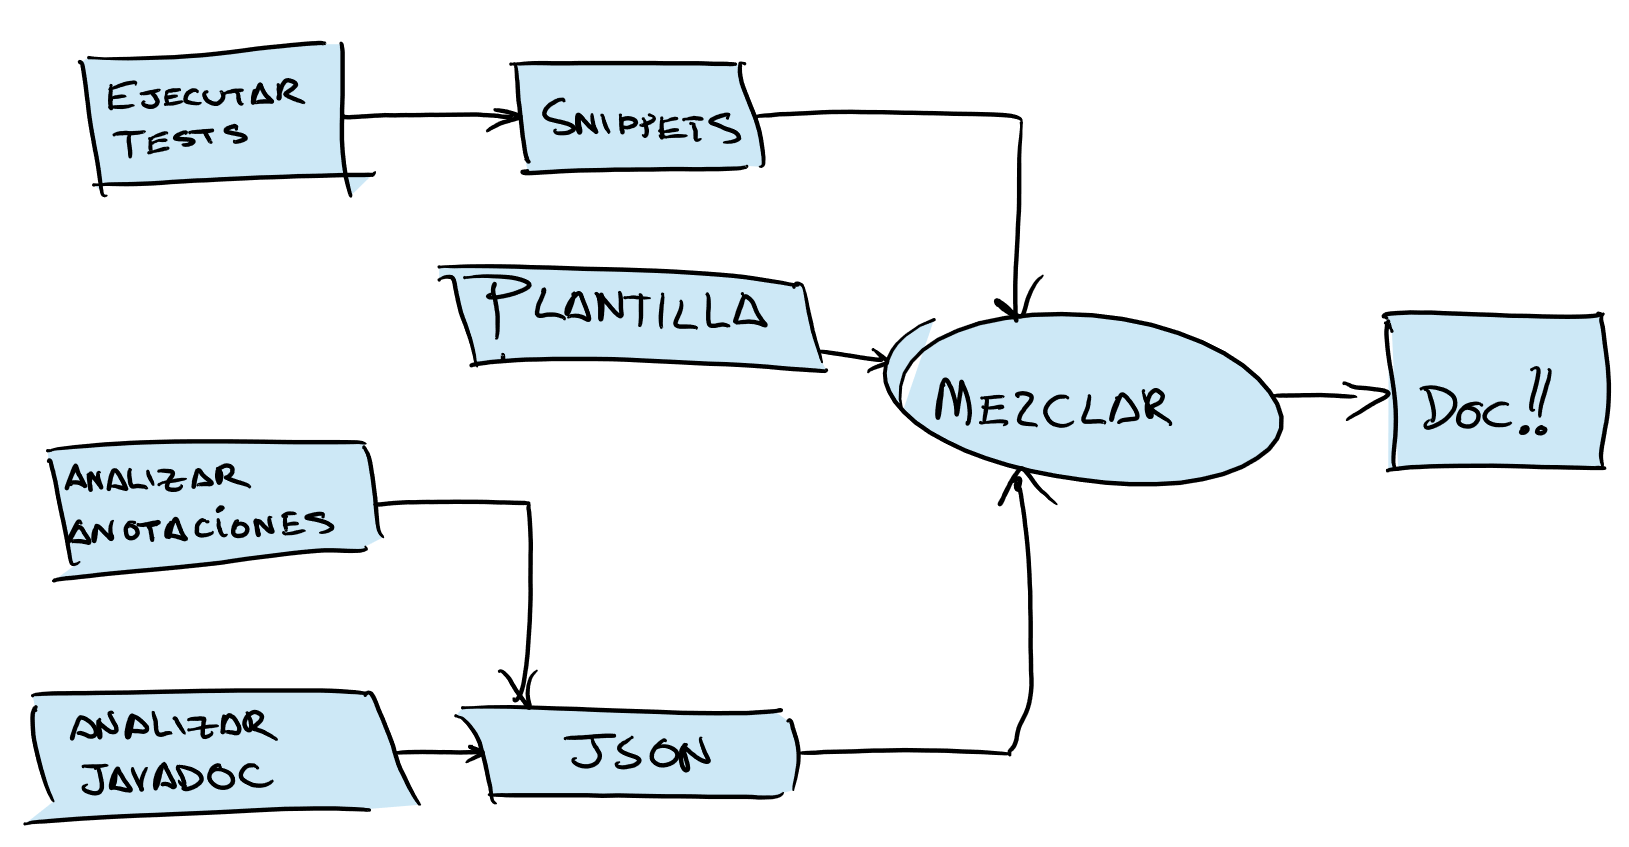 EJECUTAR
TESTS
SNIPPETS
PLANTILLA
MEZCLAR
DOC!!
ANALIZAR
ANOTACIONES
ANALIZAR
JAVADOC
JSON